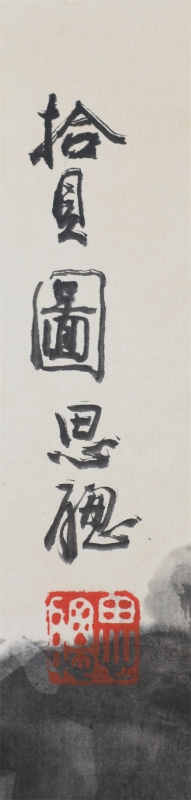 拾貝圖思聰